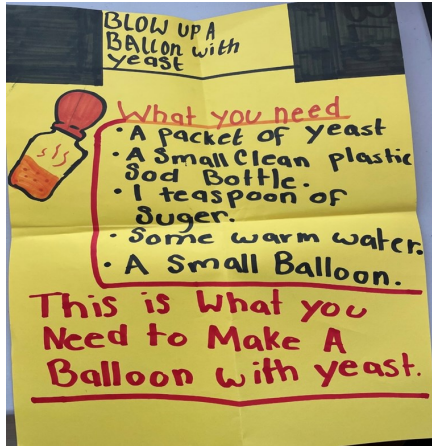 BLOW UP A
BALLON with
yeast
What you need
• A packet of yeast
• A Small Clean plastic
Sod Bottle.
• 1 teaspoon of
Suger.
• Some warm water.
• A Small Balloon.
This is What you
Need to Make A
Balloon with yeast.